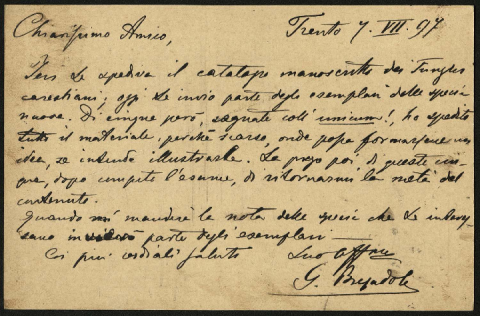 Chiarissimo Amico,
Trento 7. VII. 97
Ieri Le spediva il catalogo manoscritto dei Funghi
carestiani; oggi Le invio parte degli esemplari delle specie
nuove. Di cinque però, segnate coll' unicum!, ho spedito
tutto il materiale, perchè scarso, onde possa formarsene un
idea, se intende illustrarle. La prego poi di queste cin-
que, dopo compiti l'esame, di ritornarmi la metà del
contenuto.
Quando mi manderà la nota delle specie che Le interes-
sano invierò parte degli esemplari —
Coi più cordiali saluti
Suo affmo
G. Bresadola